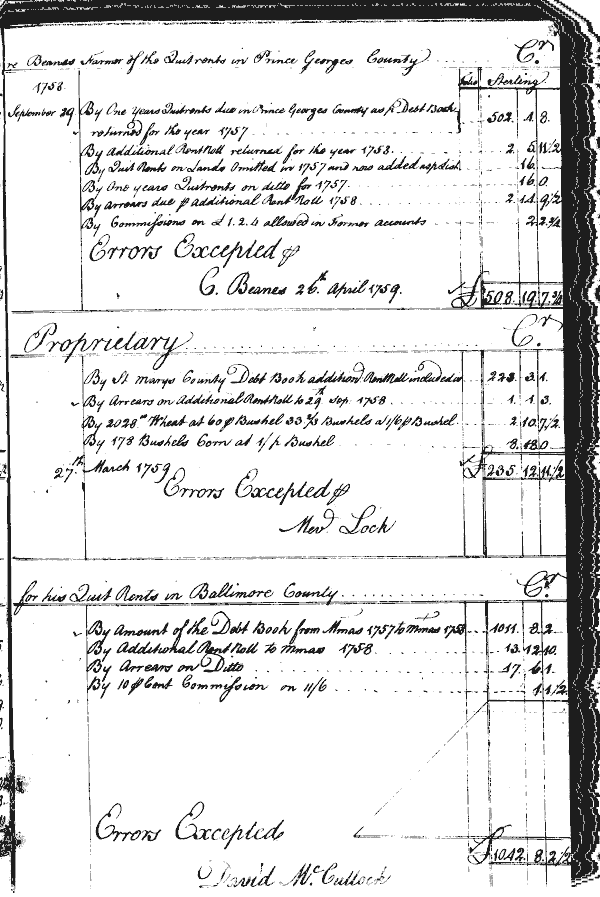 Beanes Farmer of the Quitrents in Prince Georges County Cr
1758 Sterling
September 29 By One years Quitrents due in Prince Georges County as p Debt Book 502. 4 8.
returned for the year 1757
By Additional Rent Roll returned for the year 1758 2. 5 11 1/2
By Quit Rents on Lands Omitted in 1757 and now added 16.
By One years Quitrents on ditto for 1757 16. 0
By arrears due p additional Rent Roll 1758 2. 14. 9 1/2
By Commissions on £ 1. 2. 4 allowed in Former accounts 2. 2 3/4
Errors Excepted p
C. Beanes 26th April 1759. £ 508. 19. 7 3/4
Proprietary Cr
By St Marys County Debt Book addition Rent Roll included 223. 3. 1.
By Arrears on Additional Rent Roll to 29th Sep. 1758 1. 1. 3.
By 2028 Wheat at 60 p Bushel 33 Bushels a 1/6 p Bushel 2. 10. 7 1/2
By 178 Bushels Corn at 1/ p Bushel 8. 18. 0
27th March 1759 £ 235. 12. 11 1/2
Errors Excepted p
Mevd Lock
for his Quit Rents in Baltimore County Cr
By Amount of the Debt Book from Mmas 1757 to Mmas 1758 1011. 8. 2
By Additional Rent Roll to Mmas 1758 13. 12. 10.
By Arrears on Ditto 17. 6. 1.
By 10 p Cent Commission on 11/6 1. 1 1/2
Errors Excepted £ 1042. 8. 2 1/2
David McCullock